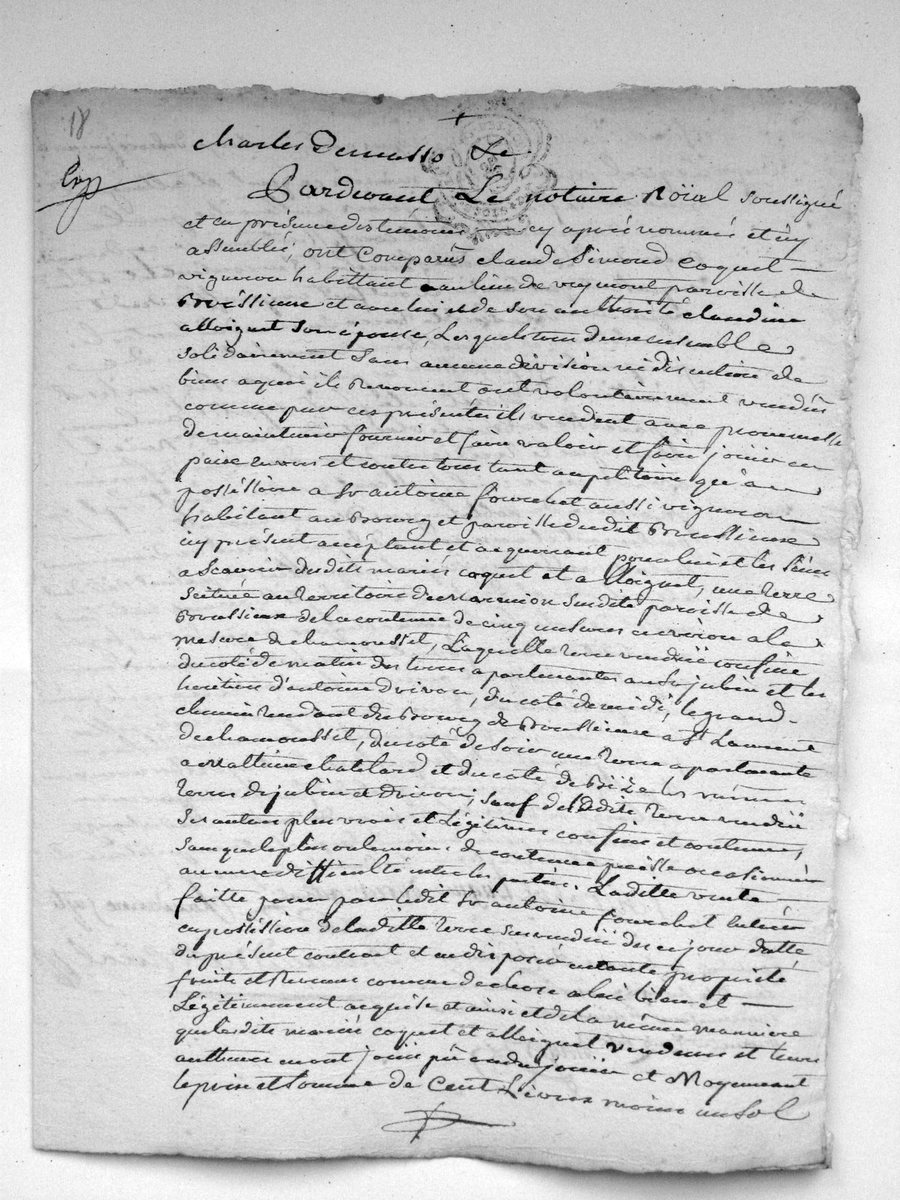 18
Exp
charles Demasso Le
Pardevant Le notaire Roïal soussigné
et en présence des témoins cy après nommés et icy
assemblés, ont comparus claude Simond coquet
vigneron habittant au lieu de paroisse de
Brussieune et avec lui et de son authorité claudine
alloignet son épouse, Lesquels tous deux ensemble
solidairement sans aucune division ni discution de
biens a quoi ils renoncent ont volontairement vendus
comme par ces présentes ils vendent avec promesse
de maintenir fournir et faire valoir et faire jouir en
paix envers et contre tous tant au petitoire qu'au
posséssoire a Sr antoine fourchet aussi vigneron
habitant au Bourg et paroisse dudit Brussieune
icy présent acceptant et acquerant pour lui et les siens
a scavoir desdits mariés coquet et alloignet, une terre
scituée au territoire de susdite paroisse de
Brussieux de la contenue de cinq mesures environ a la
mesure de chamousset, Laquelle terre vendüe confine
du coté de matin des terres apartenantes au Sr jubin et les
heritiers d'antoine drivon, du coté de midi, le grand
chemin tendant du Bourg de Brussieune a St Laurent
de chamousset, du coté de soir une terre apartenante
a chatelard et du coté de Bize les mêmes
terres de jubin et drivon, sauf de ladite terre vendüe
ses autres plus vrais et Légitimes confins et contenue,
sans que le plus ou le moins de contenue puisse occasionner
aucune difficulté entre les parties. Laditte vente
faitte pour par ledit Sr antoine fourchet entrer
en possession de laditte terre sus vendüe des ce jour datte
du présent contract et en disposer en toute propriété
fruits et revenus comme de chose a lui bien et
Légitimement acquise et ainsi et de la même manniere
que lesdits mariés coquet et alloignet vendeurs et leurs
autheurs en ont joüi pû en du joüir et Moyennant
le prix et somme de Cent Livres moins un Sol